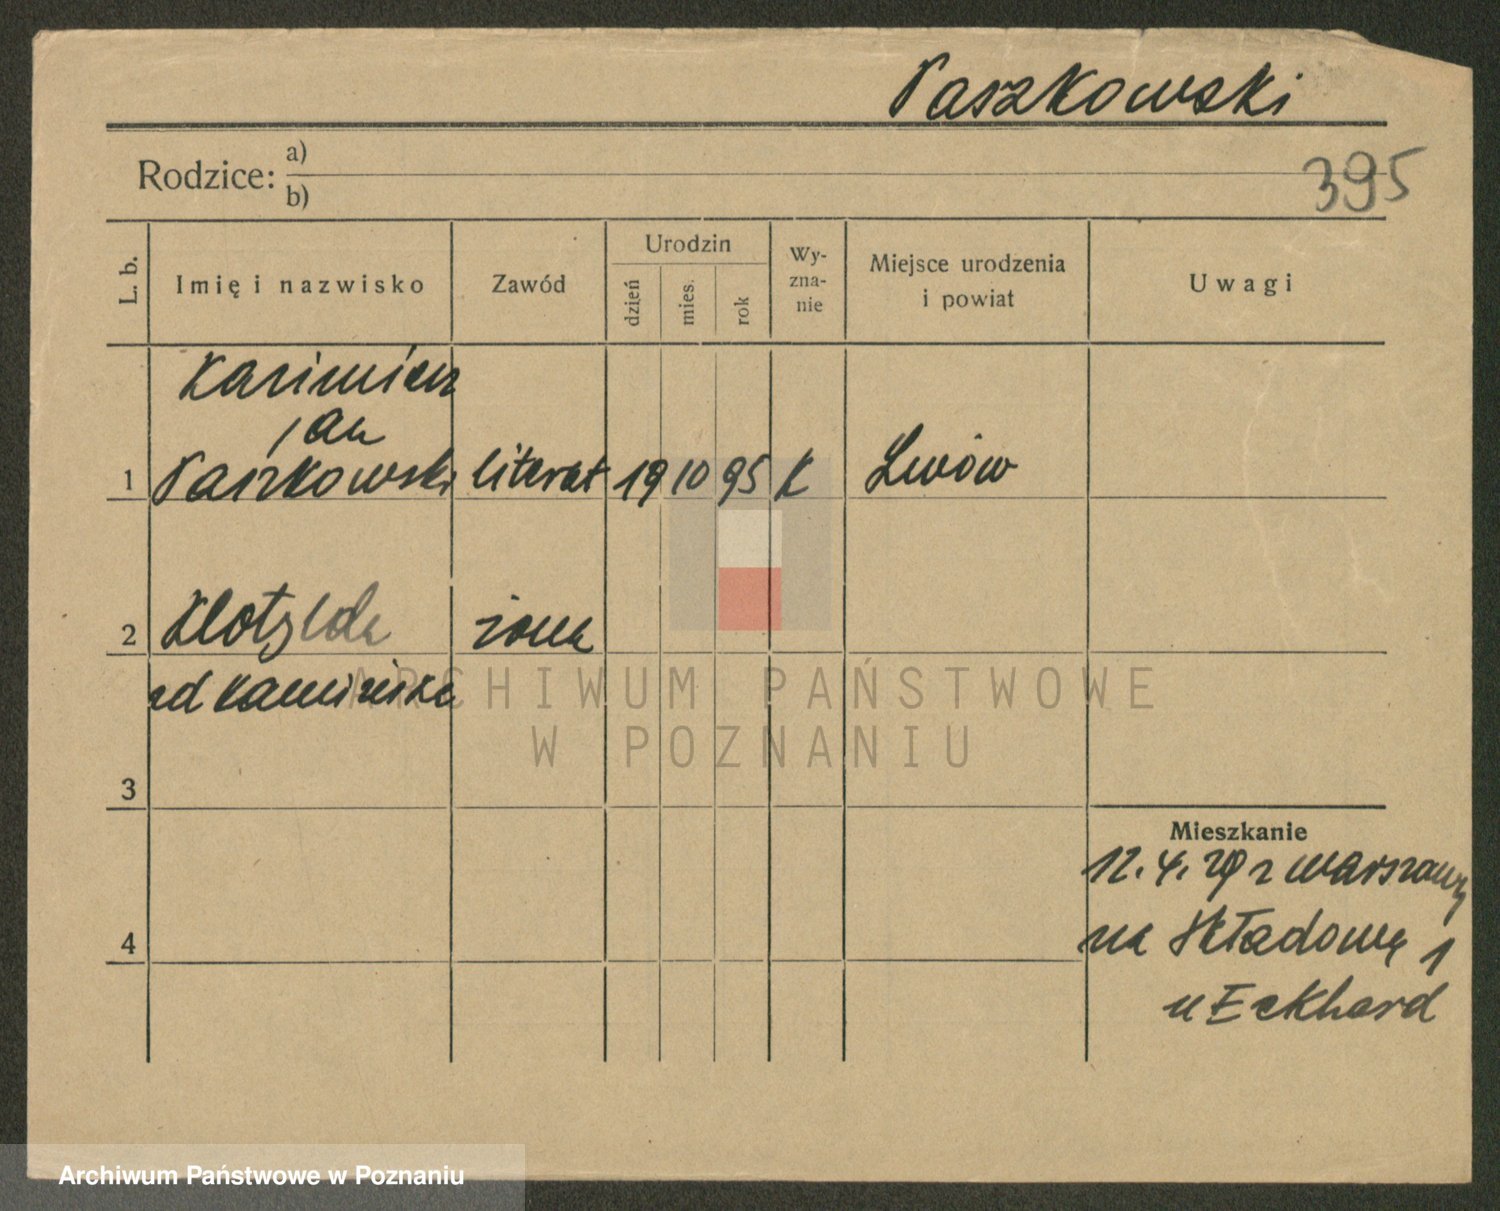 Paszkowski
Rodzice:
a)
b)
395
L. b.
Imię i nazwisko
Zawód
Urodzin
dzień
mies.
rok
Wy-
zna-
nie
Miejsce urodzenia
i powiat
Uwagi
Kazimierz
Jan
1 Paszkowski literat 19 10 95 K Lwów
2 Klotylda żona
Kamińska
3
4
Mieszkanie
12.4.29 z Warszawy
na Składową 1
u Eckhard
ARCHIWUM PAŃSTWOWE
W POZNANIU
Archiwum Państwowe w Poznaniu